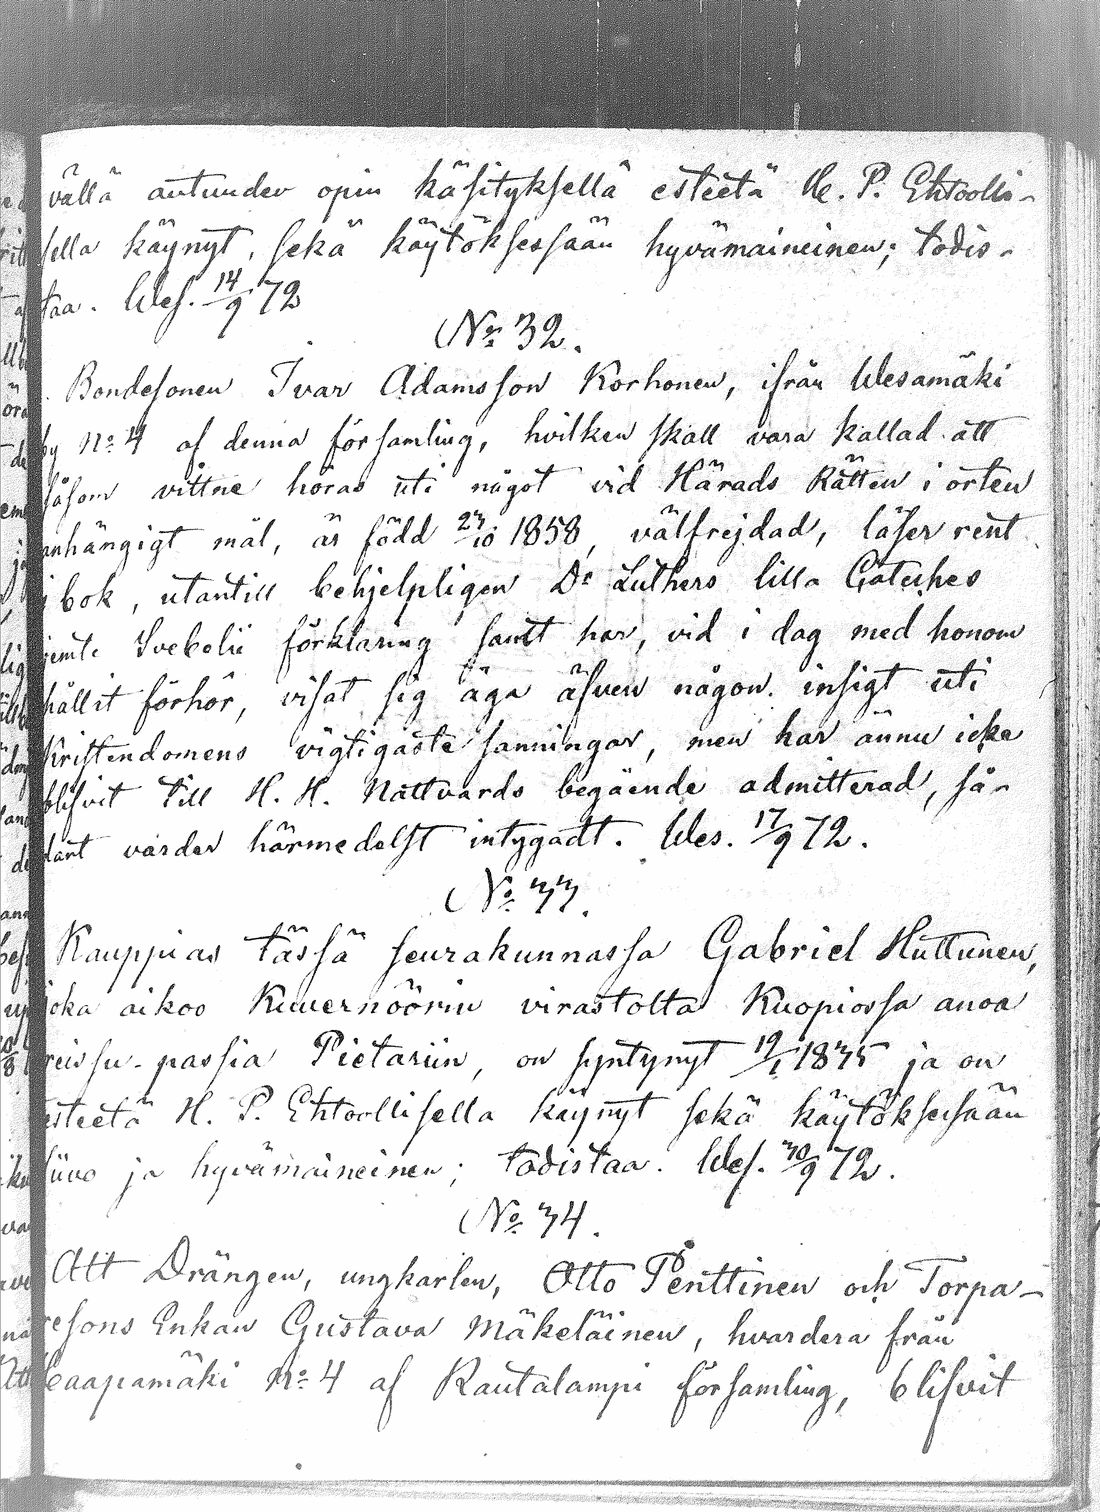 vällä autuuden opin käsityksellä esteetä H. P. Ehtoolli-
sella käynyt, sekä käytöksessään hyvämaineinen; todis-
taa. Wes. 14/9 72
No 32.
Bondesonen Ivar Adamsson Korhonen, ifrån Wesamäki
by No 4 af denna församling, hvilken skall vara kallad att
såsom vittne höras uti något vid Härads Rätten i orten
anhängigt mål, är född 23/10 1858, välfrejdad, läser rent
i bok, utantill behjelpligen Dr Luthers lilla Cateches
jemte Svebelii förklaring samt har, vid i dag med honom
hållit förhör, visat sig äga äfven någon insigt uti
Kristendomens vigtigaste sanningar, men har ännu icke
blifvit till H. H. Nattvards begående admitterad, så-
dant varder härmedelst intygadt. Wes. 17/9 72.
No 33.
Kauppias tässä seurakunnassa Gabriel Huttunen,
joka aikoo Kuvernöörin virastolta Kuopiossa anoa
reissu-passia Pietariin, on syntynyt 19/1 1835 ja on
esteetä H. P. Ehtoollisella käynyt sekä käytöksessään
siivo ja hyvämaineinen; todistaa. Wes. 30/9 72.
No 34.
Att Drängen, ungkarlen, Otto Penttinen och Torpa-
resons Enkan Gustava Mäkeläinen, hvardera från
Haapamäki No 4 af Rautalampi församling, blifvit